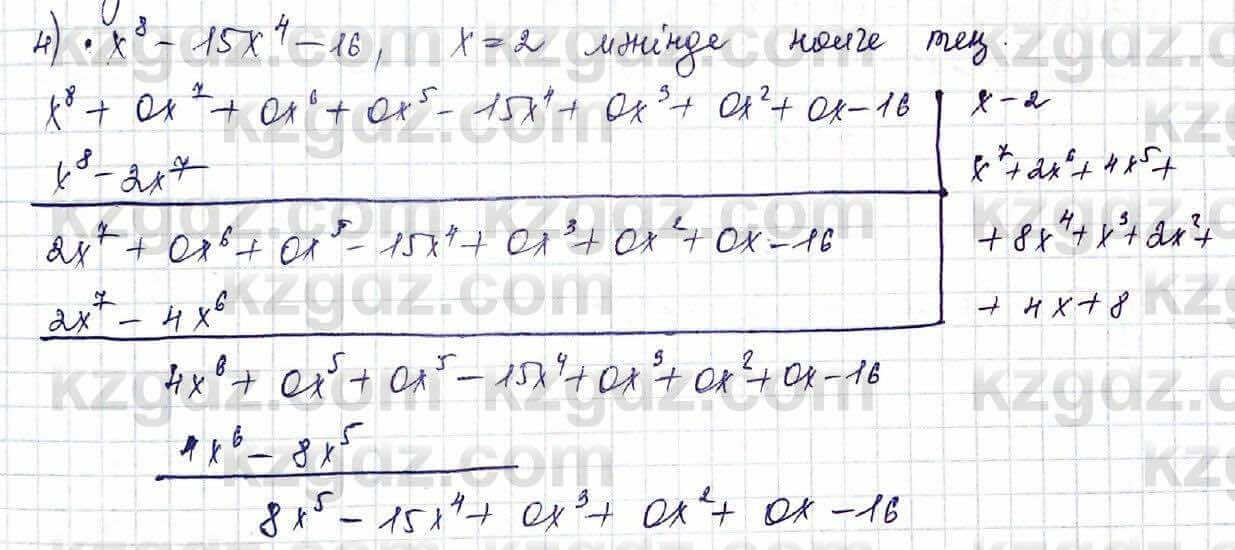 4) x⁸ - 15x⁴ - 16, x = 2 мәнінде нөлге тең.
x⁸ + 0x⁷ + 0x⁶ + 0x⁵ - 15x⁴ + 0x³ + 0x² + 0x - 16 | x - 2
x⁸ - 2x⁷ | x⁷ + 2x⁶ + 4x⁵ +
2x⁷ + 0x⁶ + 0x⁵ - 15x⁴ + 0x³ + 0x² + 0x - 16 | + 8x⁴ + x³ + 2x² +
2x⁷ - 4x⁶ | + 4x + 8
4x⁶ + 0x⁵ + 0x⁵ - 15x⁴ + 0x³ + 0x² + 0x - 16
4x⁶ - 8x⁵
8x⁵ - 15x⁴ + 0x³ + 0x² + 0x - 16
kzgdz.com